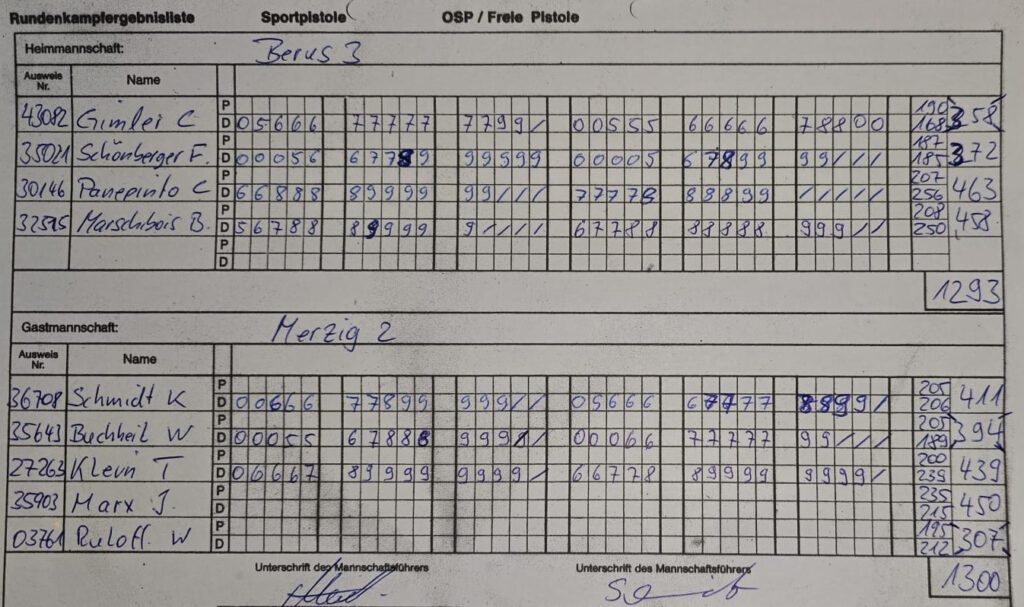 Rundenkampfergebnisliste Sportpistole OSP / Freie Pistole
Heimmannschaft: Berus 3
Ausweis Nr. Name
P 190
43082 Gimler C D 05666 77777 7799/ 00555 66666 78800 168 358
P 187
35021 Schönberger F. D 00056 67789 99999 00005 67899 99/// 185 372
P 207
30146 Panepinto C D 66888 89999 99/// 77778 88899 ///// 256 463
P 208
32595 Marschibois B. D 56788 89999 9//// 67788 88888 999// 250 458
P
D
1293
Gastmannschaft: Merzig 2
Ausweis Nr. Name
P 205
36708 Schmidt K D 00666 77899 999// 05666 67777 8899/ 206 411
P 205
35643 Buchheit W D 00055 67888 9998/ 00066 77777 99/// 189 394
P 200
27263 Klein T D 06667 89999 9999/ 66778 89999 9999/ 239 439
P 235
35903 Marx J. D 215 450
P 195
03761 Ruloff. W D 212 307
Unterschrift des Mannschaftsführers Unterschrift des Mannschaftsführers
1300